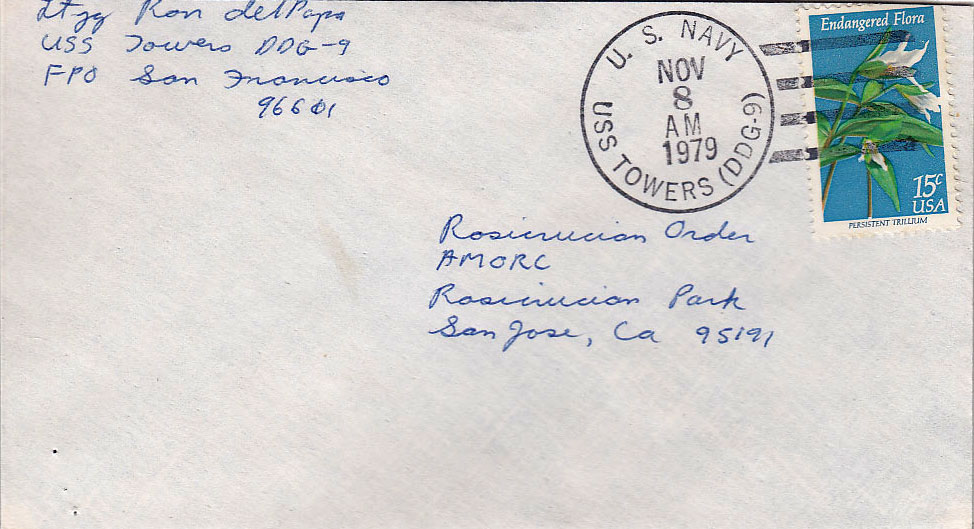 Ltjg Ron delPapa
USS Towers DDG-9
FPO San Francisco
96601
U. S. NAVY
NOV
8
AM
1979
USS TOWERS (DDG-9)
Endangered Flora
15c
USA
PERSISTENT TRILLIUM
Rosicrucian Order
AMORC
Rosicrucian Park
San Jose, Ca 95191